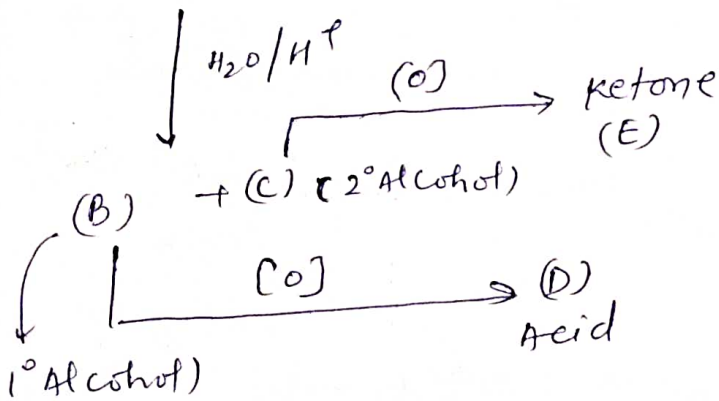 H₂O/H⁺
[O]
Ketone
(E)
(B) + (C) (2° Alcohol)
[O]
(D)
Acid
1° Alcohol)